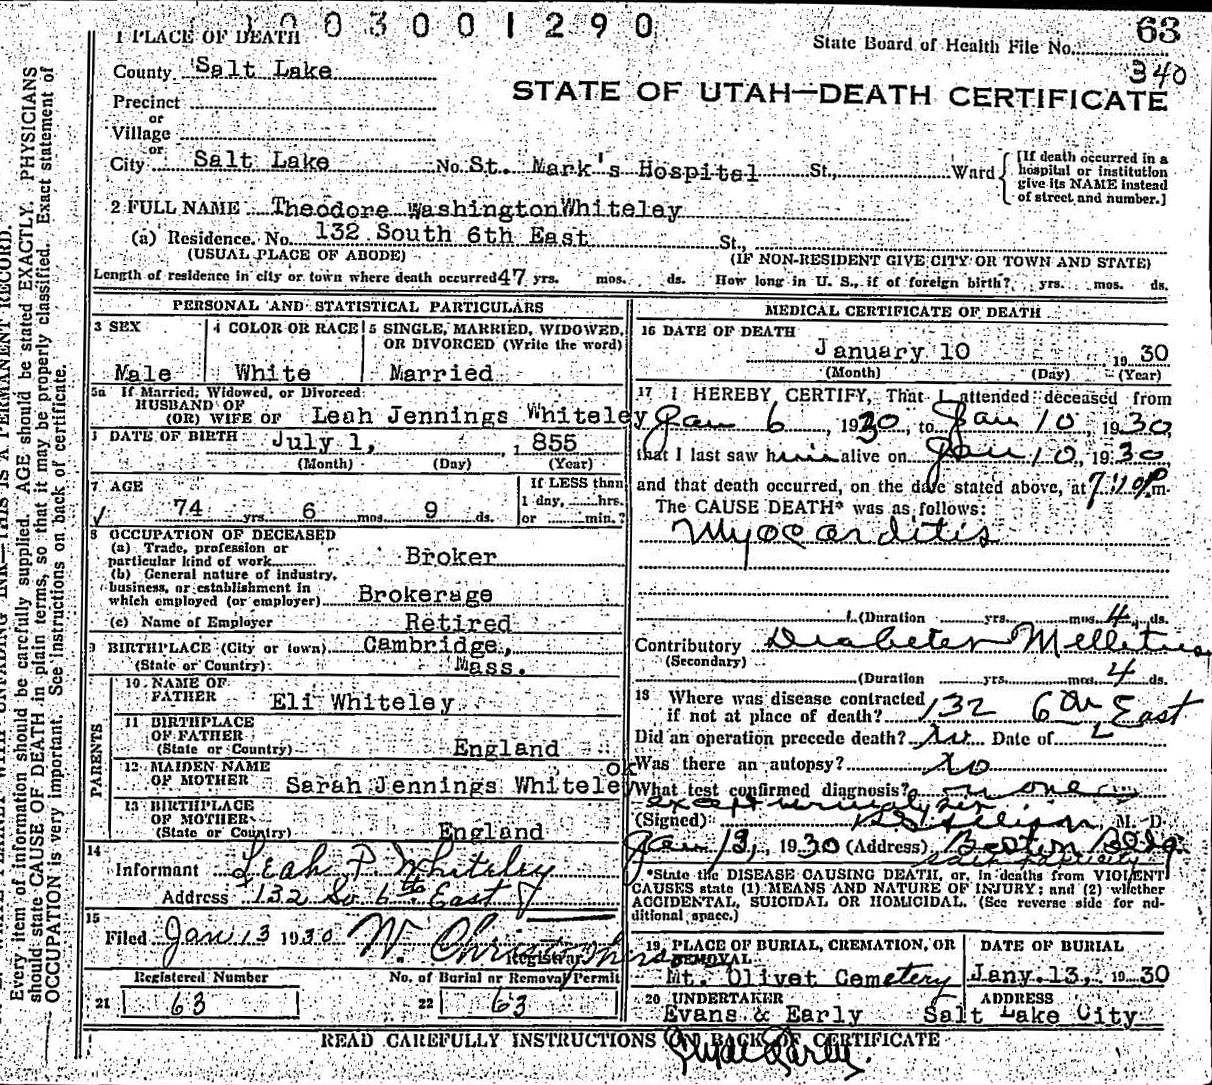 1003001290
63
State Board of Health File No.
340
1 PLACE OF DEATH
County Salt Lake
STATE OF UTAH—DEATH CERTIFICATE
Precinct
or
Village
or
City Salt Lake No. St. Mark's Hospital St., Ward
[If death occurred in a hospital or institution give its NAME instead of street and number.]
2 FULL NAME Theodore Washington Whiteley
(a) Residence. No. 132 South 6th East St.,
(USUAL PLACE OF ABODE) (IF NON-RESIDENT GIVE CITY OR TOWN AND STATE)
Length of residence in city or town where death occurred 47 yrs. mos. ds. How long in U. S., if of foreign birth? yrs. mos. ds.
PERSONAL AND STATISTICAL PARTICULARS
3 SEX
Male
4 COLOR OR RACE
White
5 SINGLE, MARRIED, WIDOWED, OR DIVORCED (Write the word)
Married
5a If Married, Widowed, or Divorced
HUSBAND OF
(OR) WIFE OF Leah Jennings Whiteley
DATE OF BIRTH July 1, 1855
(Month) (Day) (Year)
7 AGE
74 yrs. 6 mos. 9 ds.
If LESS than
1 day, hrs.
or min.?
8 OCCUPATION OF DECEASED
(a) Trade, profession or
particular kind of work Broker
(b) General nature of industry,
business, or establishment in
which employed (or employer) Brokerage
(c) Name of Employer Retired
9 BIRTHPLACE (City or town) Cambridge,
(State or Country) Mass.
PARENTS
10 NAME OF
FATHER Eli Whiteley
11 BIRTHPLACE
OF FATHER
(State or Country) England
12 MAIDEN NAME
OF MOTHER Sarah Jennings Whiteley
ok
13 BIRTHPLACE
OF MOTHER
(State or Country) England
14
Informant Leah P. Whiteley
Address 132 So 6th East
15
Filed Jan 13 1930 W. Christophers
Registrar
Registered Number
21 63
No. of Burial or Removal Permit
22 63
MEDICAL CERTIFICATE OF DEATH
16 DATE OF DEATH
January 10 1930
(Month) (Day) (Year)
17 I HEREBY CERTIFY, That I attended deceased from
Jan 6, 1930, to Jan 10, 1930,
that I last saw him alive on Jan 10, 1930
and that death occurred, on the date stated above, at 7:10 P.m.
The CAUSE DEATH* was as follows:
Myocarditis
(Duration yrs. mos. 4 ds.
Contributory Diabetes Mellitus
(Secondary)
(Duration yrs. mos. 4 ds.
18 Where was disease contracted
if not at place of death? 132 6th East
Did an operation precede death? no Date of
Was there an autopsy? No
What test confirmed diagnosis? none
except urinalysis
(Signed) M. D.
Jan 13, 1930 (Address) Boston Bldg.
Salt Lake City
*State the DISEASE CAUSING DEATH, or, in deaths from VIOLENT
CAUSES state (1) MEANS AND NATURE OF INJURY; and (2) whether
ACCIDENTAL, SUICIDAL OR HOMICIDAL. (See reverse side for ad-
ditional space.)
19 PLACE OF BURIAL, CREMATION, OR
REMOVAL
Mt. Olivet Cemetery
DATE OF BURIAL
Jany.13, 1930
20 UNDERTAKER
Evans & Early
ADDRESS
Salt Lake City
READ CAREFULLY INSTRUCTIONS ON BACK OF CERTIFICATE
Clyde Early
Every item of information should be carefully supplied. AGE should be stated EXACTLY. PHYSICIANS
should state CAUSE OF DEATH in plain terms, so that it may be properly classified. Exact statement of
OCCUPATION is very important. See instructions on back of certificate.